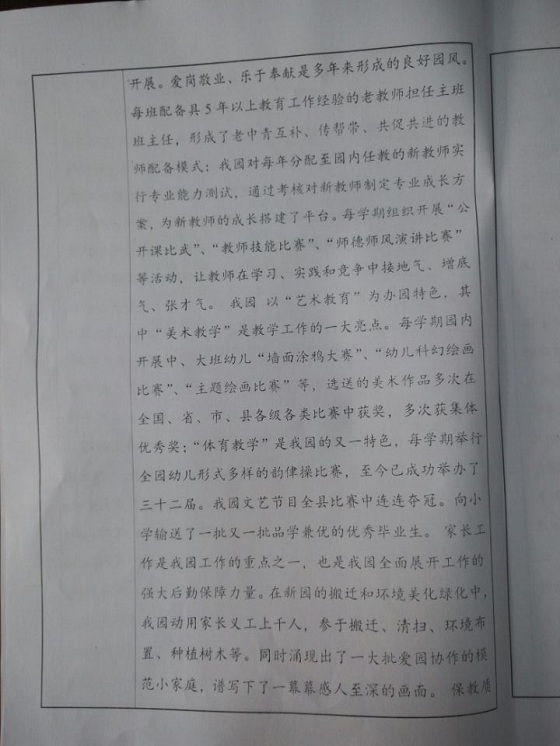 开展。爱岗敬业、乐于奉献是多年来形成的良好园风。
每班配备具5年以上教育工作经验的老教师担任主班
班主任，形成了老中青互补、传帮带、共促共进的教
师配备模式；我园对每年分配至园内任教的新教师实
行专业能力测试，通过考核对新教师制定专业成长方
案，为新教师的成长搭建了平台。每学期组织开展“公
开课比武”、“教师技能比赛”、“师德师风演讲比赛”
等活动，让教师在学习、实践和竞争中接地气、增底
气、张才气。 我园 以“艺术教育”为办园特色，其
中“美术教学”是教学工作的一大亮点。每学期园内
开展中、大班幼儿“墙面涂鸦大赛”、“幼儿科幻绘画
比赛”、“主题绘画比赛”等，选送的美术作品多次在
全国、省、市、县各级各类比赛中获奖，多次获集体
优秀奖；“体育教学”是我园的又一特色，每学期举行
全园幼儿形式多样的韵律操比赛，至今已成功举办了
三十二届。我园文艺节目全县比赛中连连夺冠。向小
学输送了一批又一批品学兼优的优秀毕业生。 家长工
作是我园工作的重点之一，也是我园全面展开工作的
强大后勤保障力量。在新园的搬迁和环境美化绿化中，
我园动用家长义工上千人，参于搬迁、清扫、环境布
置、种植树木等。同时涌现出了一大批爱园协作的模
范小家庭，谱写下了一幕幕感人至深的画面。 保教质